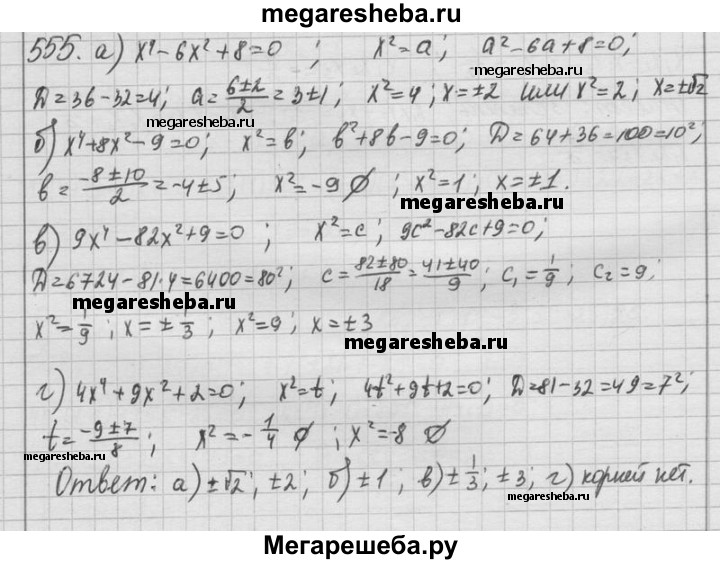 megaresheba.ru
555. а) x⁴-6x²+8=0 ; x²=a; a²-6a+8=0;
megaresheba.ru
Д=36-32=4; a=(6±2)/2=3±1; x²=4; x=±2 или x²=2; x=±√2
megaresheba.ru
б) x⁴+8x²-9=0; x²=b; b²+8b-9=0; Д=64+36=100=10²;
b=(-8±10)/2=-4±5; x²=-9 ∅ ; x²=1; x=±1.
megaresheba.ru
в) 9x⁴-82x²+9=0 ; x²=c; 9c²-82c+9=0;
Д=6724-81·4=6400=80²; c=(82±80)/18=(41±40)/9; c₁=1/9; c₂=9;
megaresheba.ru
x²=1/9; x=±1/3; x²=9; x=±3
megaresheba.ru
г) 4x⁴+9x²+2=0; x²=t; 4t²+9t+2=0; Д=81-32=49=7²;
t=(-9±7)/8; x²=-1/4 ∅ ; x²=-8 ∅
megaresheba.ru
Ответ: а) ±√2; ±2; б) ±1; в) ±1/3; ±3; г) корней нет.
megaresheba.ru
Мегарешеба.ру